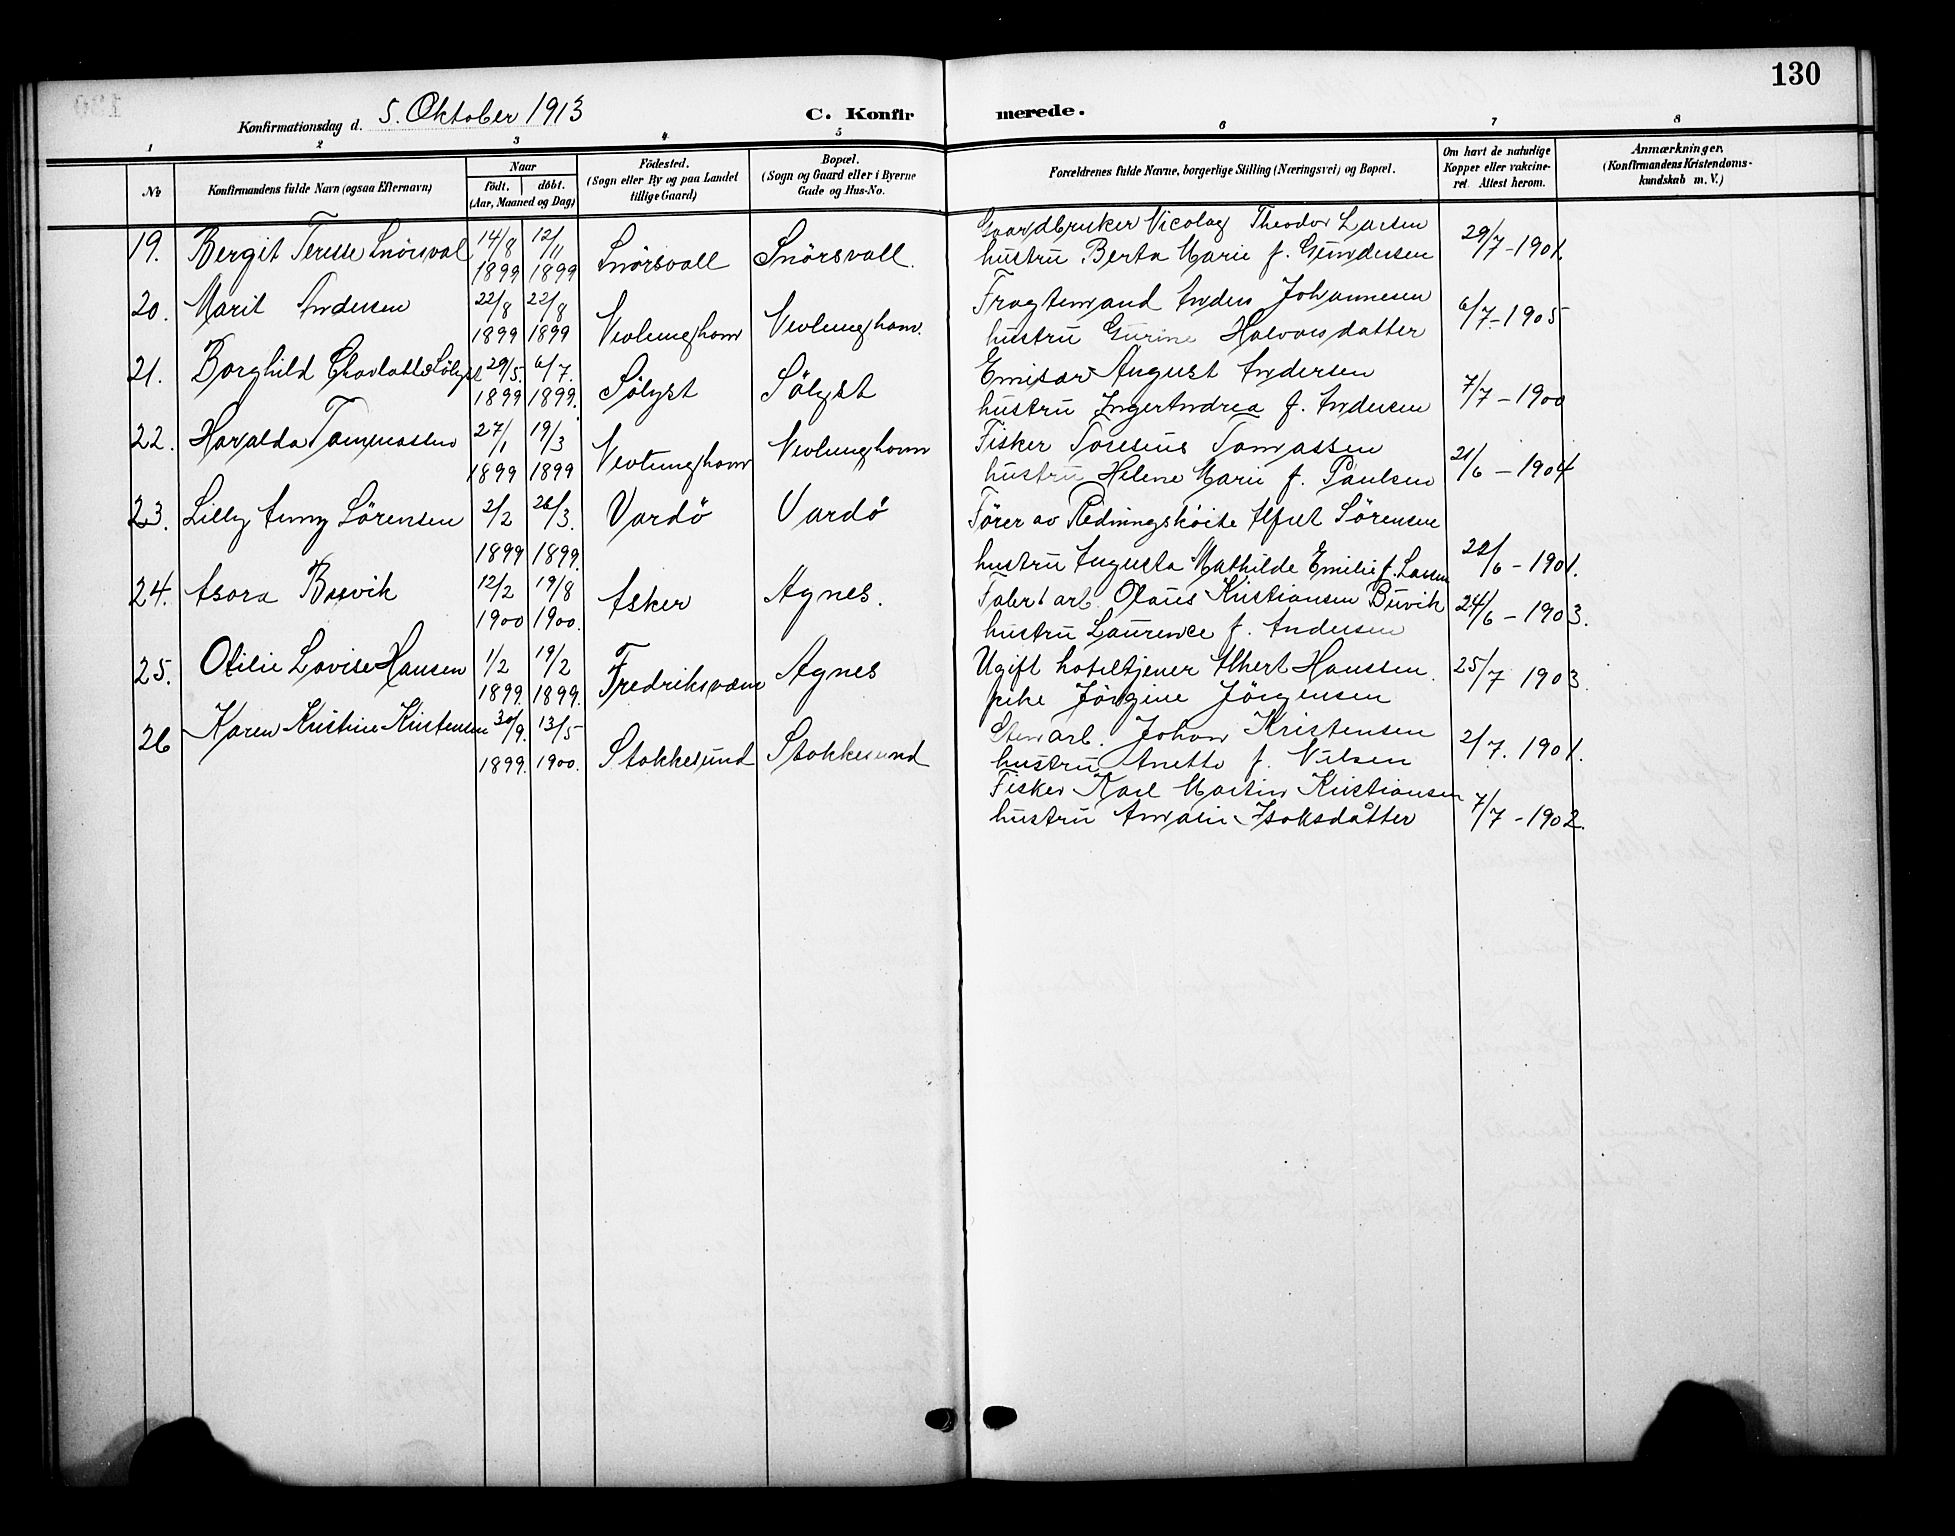 130
Konfirmationsdag d. 5. Oktober 1913
C. Konfirmerede.
1 2 3 4 5 6 7 8
No Konfirmandens fulde Navn (ogsaa Efternavn)
Naar
födt. döbt.
(Aar, Maaned og Dag)
Födested.
(Sogn eller By og paa Landet
tillige Gaard)
Bopæl.
(Sogn og Gaard eller i Byerne
Gade og Hus-No.
Forældrenes fulde Navne, borgerlige Stilling (Næringsvei) og Bopæl.
Om havt de naturlige
Kopper eller vakcine-
ret. Attest herom.
Anmærkninger.
(Konfirmandens Kristendoms-
kundskab m. V.)
19. Bergit Terese Snörsval 14/8 1899 12/11 1899 Snörsvall Snörsvall.
Gaardbruker Nicolay Theodor Larsen
hustru Berta Marie f. Gundersen 29/7-1901
20. Marit Andersen 22/8 1899 22/8 1899 Nevlunghavn Nevlunghavn.
Fragtemand Anders Johannesen
hustru Gurine Halvorsdatter 6/7-1905
21. Borghild Charlotte Sölyst 29/5. 1899 6/7. 1899. Sölyst Sölyst
Emisær August Andersen
hustru Inger Andrea f. Andersen 7/7-1900
22. Haralda Tommassen 27/1 1899 19/3 1899 Nevlunghavn Nevlunghavn
Fisker Toresius Tomassen
hustru Helene Marie f. Paulsen 21/6-1904
23. Lilly Anny Sörensen 2/2 1899 26/3. 1899. Vardö Vardö
Förer av Redningsköite Alfred Sörensen
hustru Augusta Mathilde Emilie f. Larsen 22/6-1901.
24. Asora Buvik 12/2 1900 19/8 1900. Asker Agnes.
Fabrikarb. Olaus Kristiansen Buvik
hustru Laurence f. Andersen 24/6-1903.
25. Otilie Lovise Hansen 1/2 1899. 19/2 1899. Fredriksværn Agnes
Ugift hoteltjener Albert Hanssen.
pike Jörgine Jörgensen 25/7 1903.
26 Karen Kristine Kristensen 30/9. 1899. 13/5 1900. Stokkesund Stokkesund
Stenarb. Johan Kristensen
hustru Anette f. Nilsen 2/7. 1901.
Fisker Karl Martin Kristiansen
hustru Amalie Isaksdatter 7/7-1902.